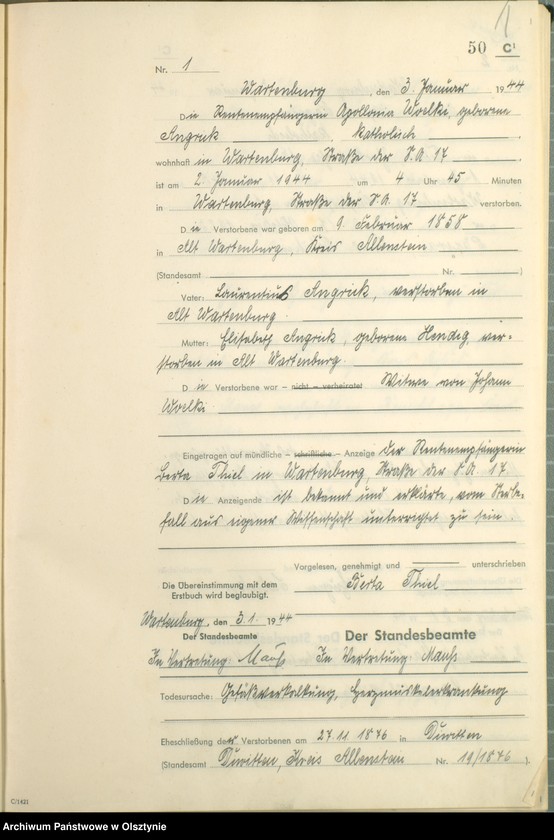 50 C¹
1
Nr. 1
Wartenburg, den 3. Januar 1944
Die Rentenempfängerin Apollonia Woelki, geborene
Angrick katholisch
wohnhaft in Wartenburg, Straße der S.A. 17
ist am 2. Januar 1944 um 4 Uhr 45 Minuten
in Wartenburg, Straße der S.A. 17 verstorben.
Die Verstorbene war geboren am 9. Februar 1858
in Alt Wartenburg, Kreis Allenstein
(Standesamt Nr. )
Vater: Laurentius Angrick, verstorben in
Alt Wartenburg.
Mutter: Elisabeth Angrick, geborene Hendig ver-
storben in Alt Wartenburg.
Die Verstorbene war – nicht – verheiratet Witwe von Johann
Woelki
Eingetragen auf mündliche – schriftliche – Anzeige der Rentenempfängerin
Berta Thiel in Wartenburg, Straße der S.A. 17
Die Anzeigende ist bekannt und erklärte, vom Sterbe-
fall aus eigener Wissenschaft unterrichtet zu sein.
Vorgelesen, genehmigt und unterschrieben
Berta Thiel
Die Übereinstimmung mit dem
Erstbuch wird beglaubigt.
Wartenburg, den 3.1. 1944
Der Standesbeamte
In Vertretung:
Der Standesbeamte
In Vertretung:
Todesursache: Gefäßverkalkung, Herzmuskelerkrankung
Eheschließung der Verstorbenen am 27.11.1876 in
(Standesamt Kreis Allenstein Nr. 19/1876 )
C/1421
Archiwum Państwowe w Olsztynie